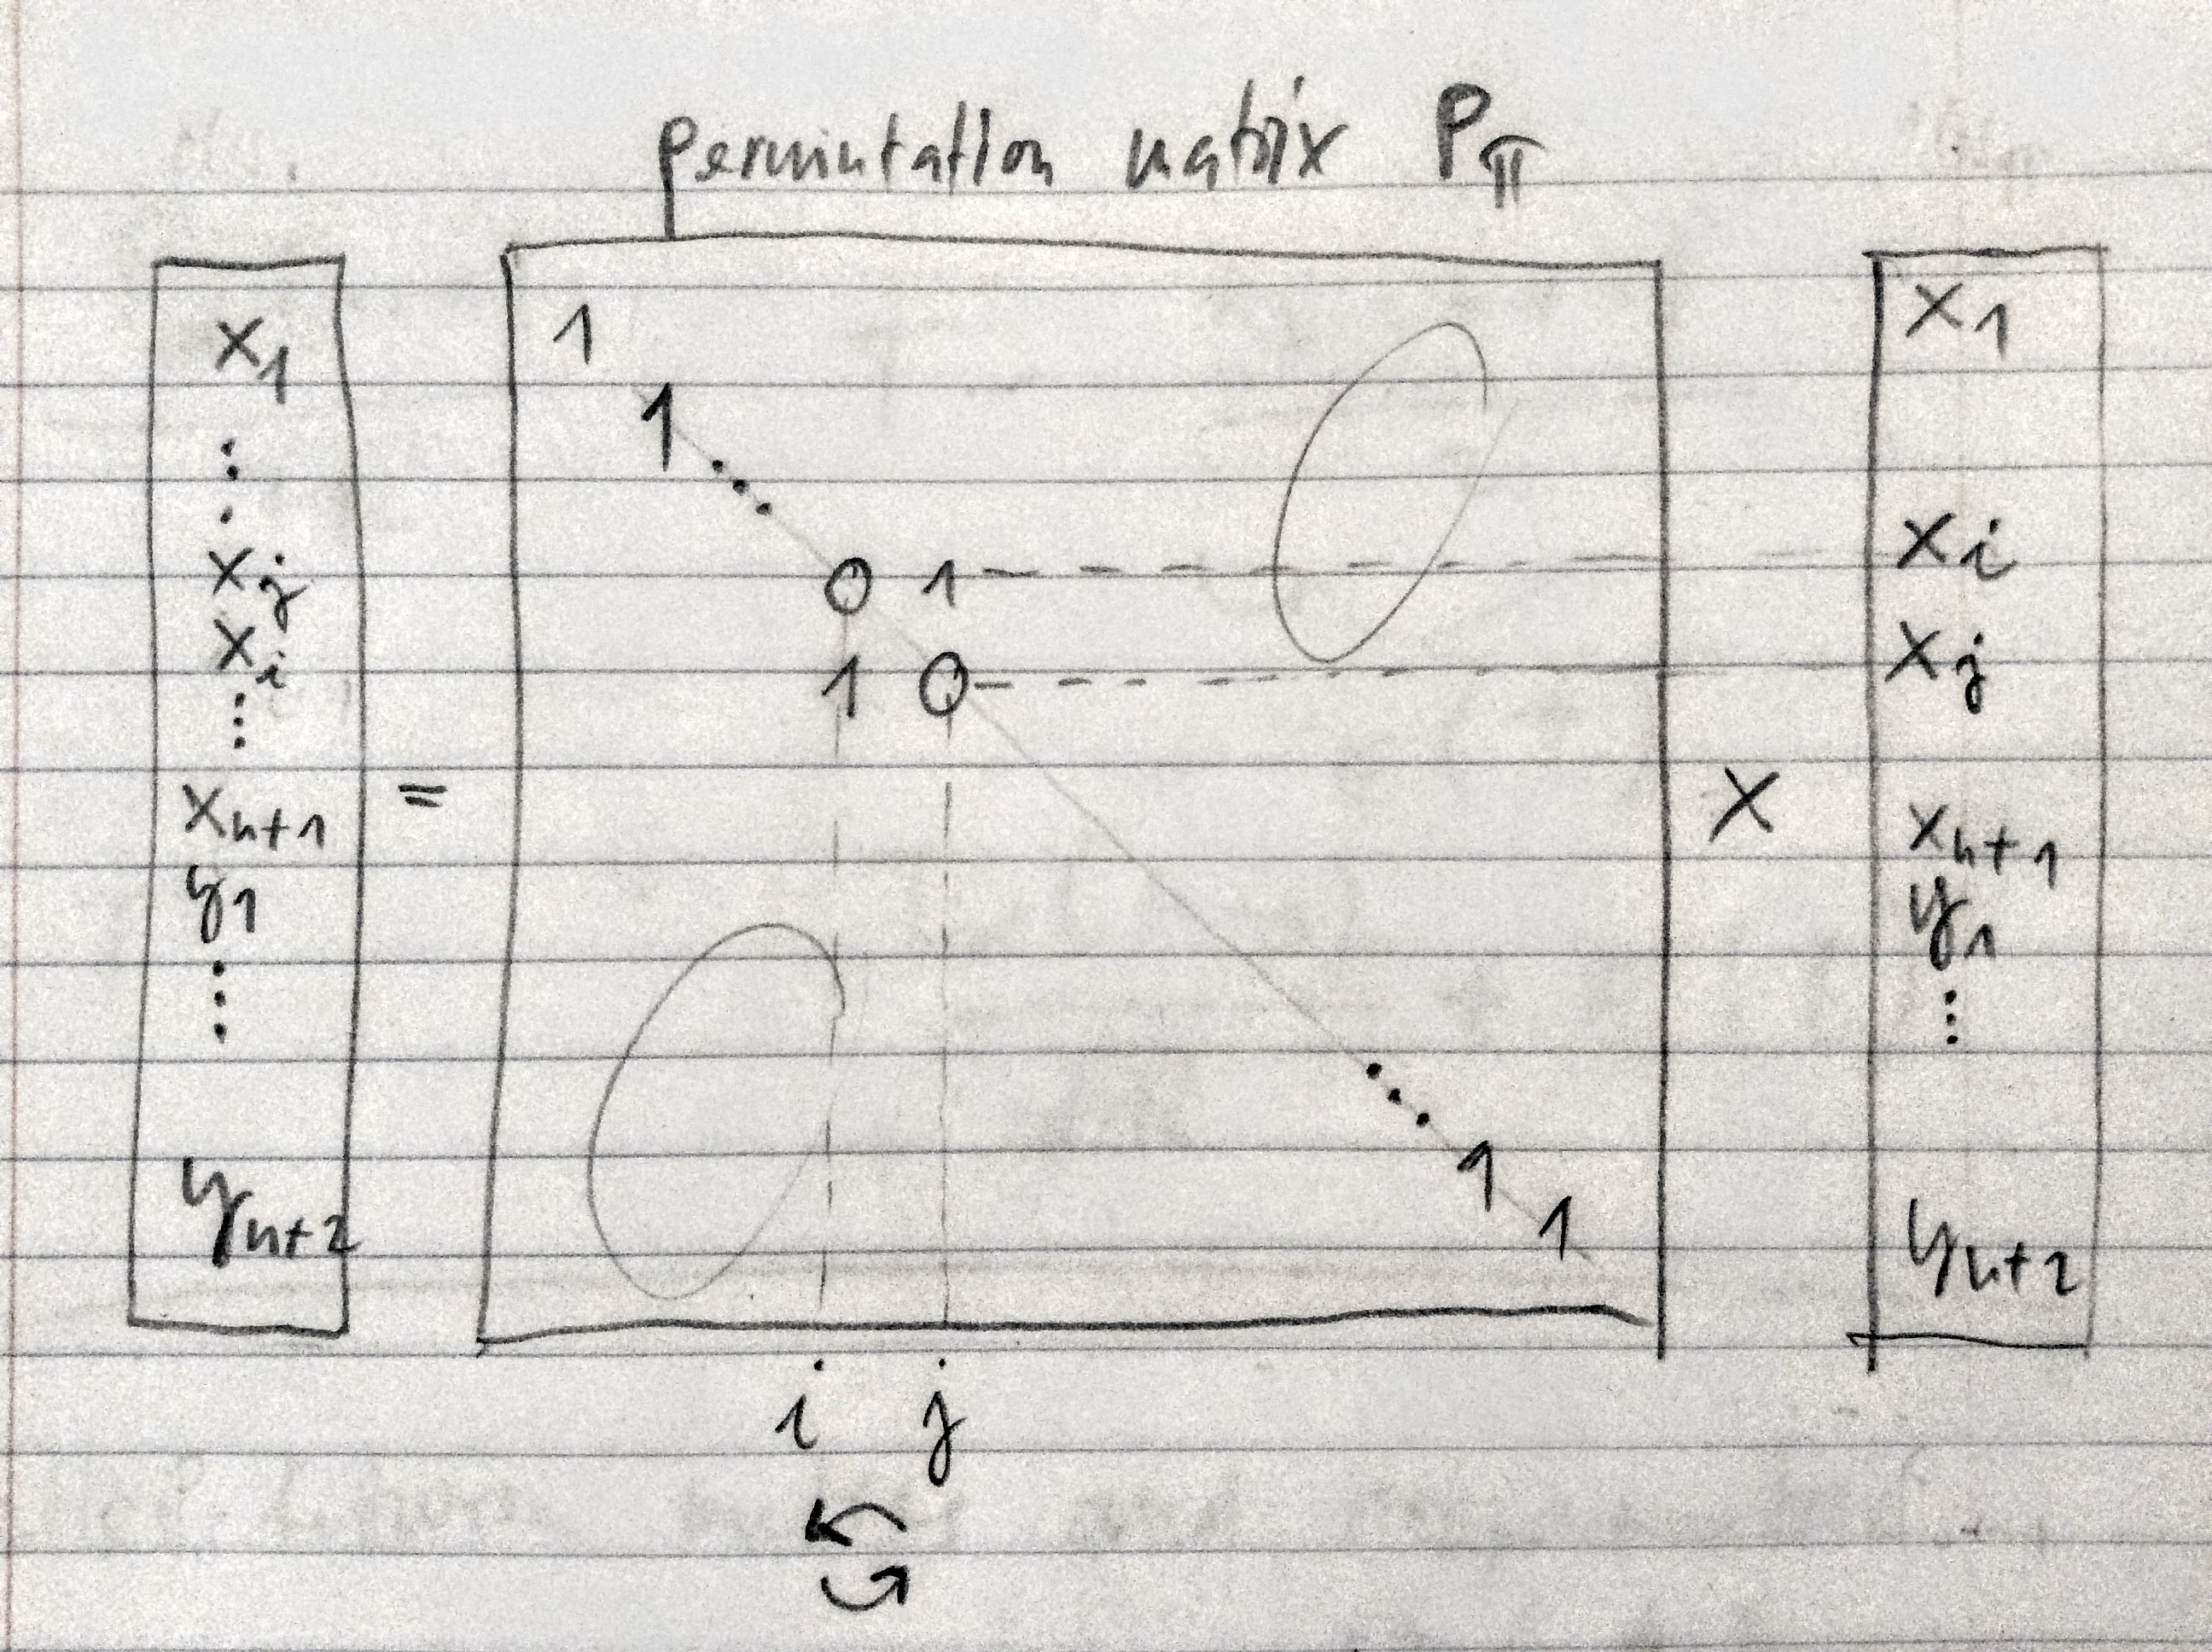 permutation matrix Pπ
x1
⋮
xj
xi
⋮
xn+1
y1
⋮
yn+2
=
1
1
⋱
0 1
1 0
⋱
1
1
0
0
i j
X
x1
xi
xj
xn+1
y1
⋮
yn+2